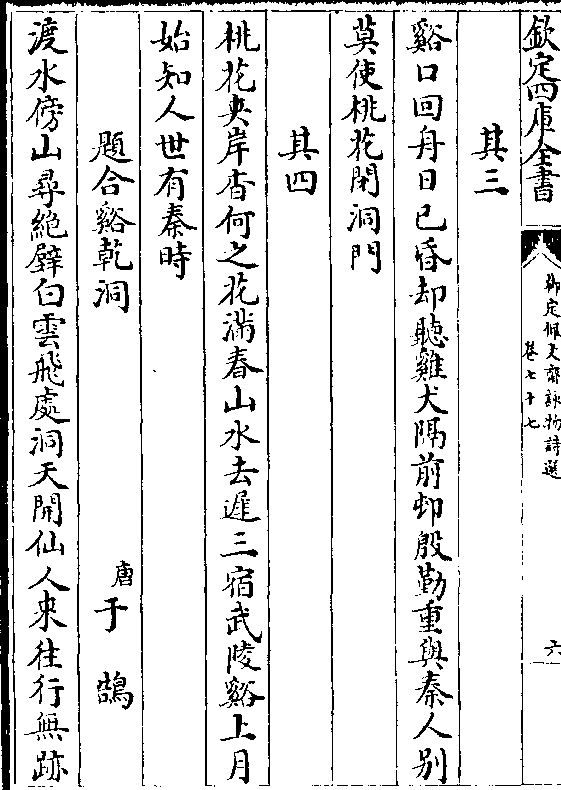 欽定四庫全書
御定佩文齋詠物詩選
卷七十七
六
其三
谿口回舟日已昏却聽雞犬隔前邨殷勤重與秦人别
莫使桃花閉洞門
其四
桃花夾岸杳何之花滿春山水去遲三宿武陵谿上月
始知人世有秦時
題合谿乾洞 唐于鵠
渡水傍山尋絶壁白雲飛處洞天開仙人來往行無跡